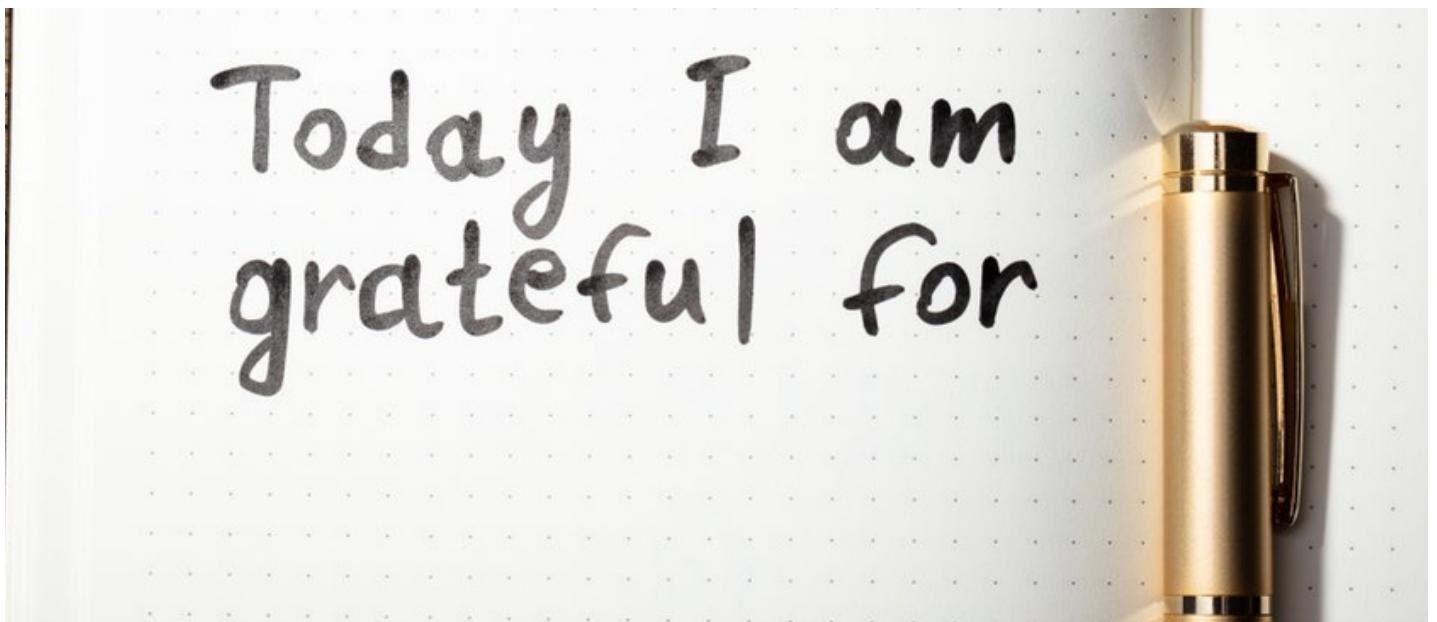 Today I am
grateful for